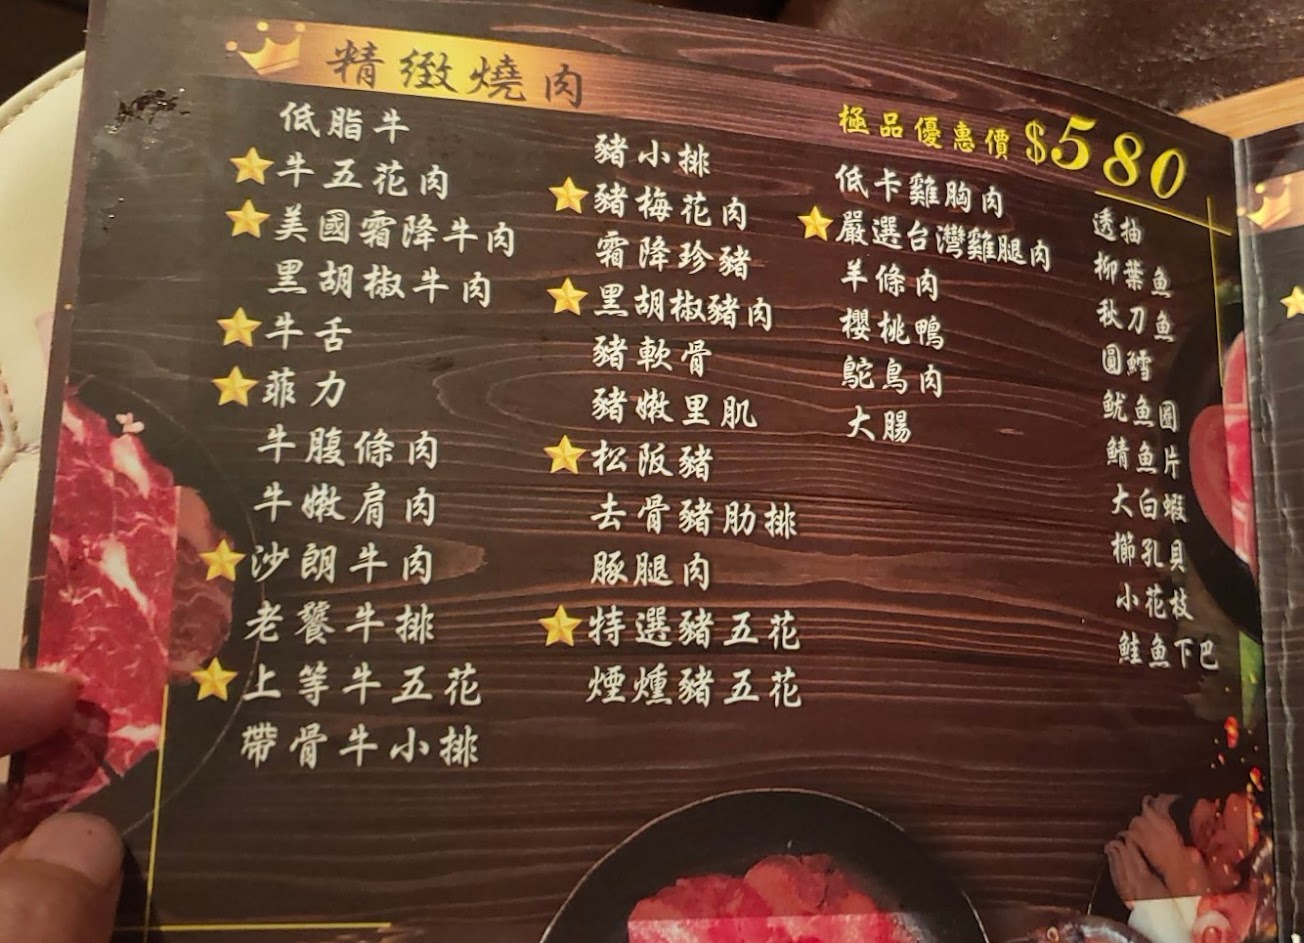 精緻燒肉
極品優惠價 $580
低脂牛
牛五花肉
美國霜降牛肉
黑胡椒牛肉
牛舌
菲力
牛腹條肉
牛嫩肩肉
沙朗牛肉
老饕牛排
上等牛五花
帶骨牛小排
豬小排
豬梅花肉
霜降珍豬
黑胡椒豬肉
豬軟骨
豬嫩里肌
松阪豬
去骨豬肋排
豚腿肉
特選豬五花
煙燻豬五花
低卡雞胸肉
嚴選台灣雞腿肉
羊條肉
櫻桃鴨
鴕鳥肉
大腸
透抽
柳葉魚
秋刀魚
圓鱈
魷魚圈
鯖魚片
大白蝦
櫛孔貝
小花枝
鮭魚下巴